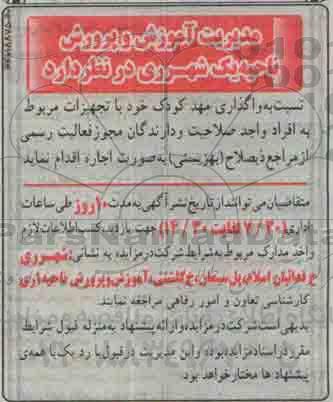 مدیریت آموزش و پرورش
ناحیه یک شهرری در نظر دارد
نسبت به واگذاری مهد کودک خود با تجهیزات مربوط
به افراد واجد صلاحیت و دارندگان مجوز فعالیت رسمی
از مراجع ذیصلاح (بهزیستی) به صورت اجاره اقدام نماید
متقاضیان می توانند از تاریخ نشر آگهی به مدت ۱۰ روز طی ساعات
اداری (۷/۳۰ لغایت ۱۴/۳۰) جهت بازدید، کسب اطلاعات لازم
واخذ مدارک مربوط به شرایط شرکت در مزایده به نشانی: شهرری
خ فدائیان اسلام، پل سیمان، آموزش و پرورش ناحیه ۱ ری
کارشناسی تعاون و امور رفاهی مراجعه نمایند.
بدیهی است شرکت در مزایده و ارائه پیشنهاد به منزله قبول شرایط
مقرر در اسناد مزایده بوده و این مدیریت در قبول یا رد یک یا همه ی
پیشنهاد ها مختار خواهد بود.